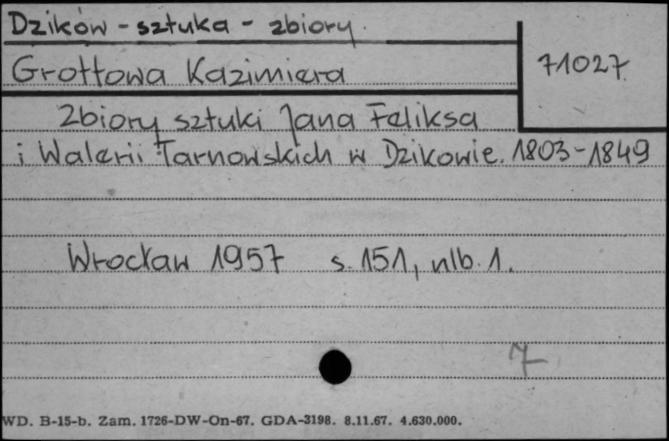 Dzików - sztuka - zbiory
Grottowa Kazimiera
71027
Zbiory sztuki Jana Feliksa
i Walerii Tarnowskich w Dzikowie. 1803-1849
Wrocław 1957 s. 151, nlb. 1.
7
WD. B-15-b. Zam. 1726-DW-On-67. GDA-3198. 8.11.67. 4.630.000.